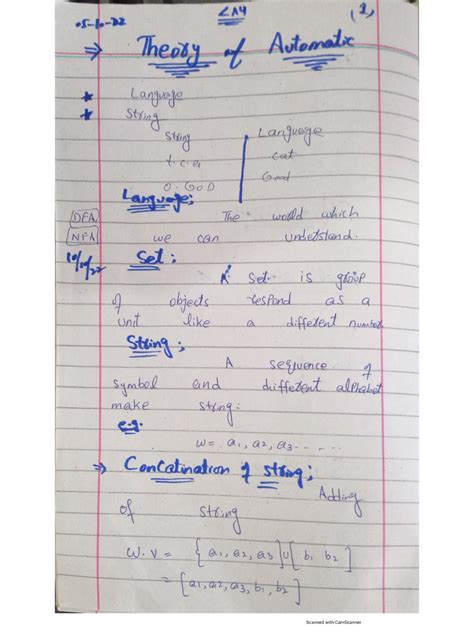 05-10-22 LA4 (1)
⇒ Theory of Automatic
★ Language
★ String
String | Language
t.c.a | cat
O.GOD | Good
Language;
DFA The world which
NFA we can understand.
10/10/22 Set;
A Set is group
of objects respond as a
unit like a different number
String;
A sequence of
symbol and different alphabet
make string.
e.g.
w = a1, a2, a3 - - - - -
⇒ Concatination of string;
Adding
of string
W.V = {a1, a2, a3]U[b1 b2]
= [a1, a2, a3, b1, b2]
Scanned with CamScanner